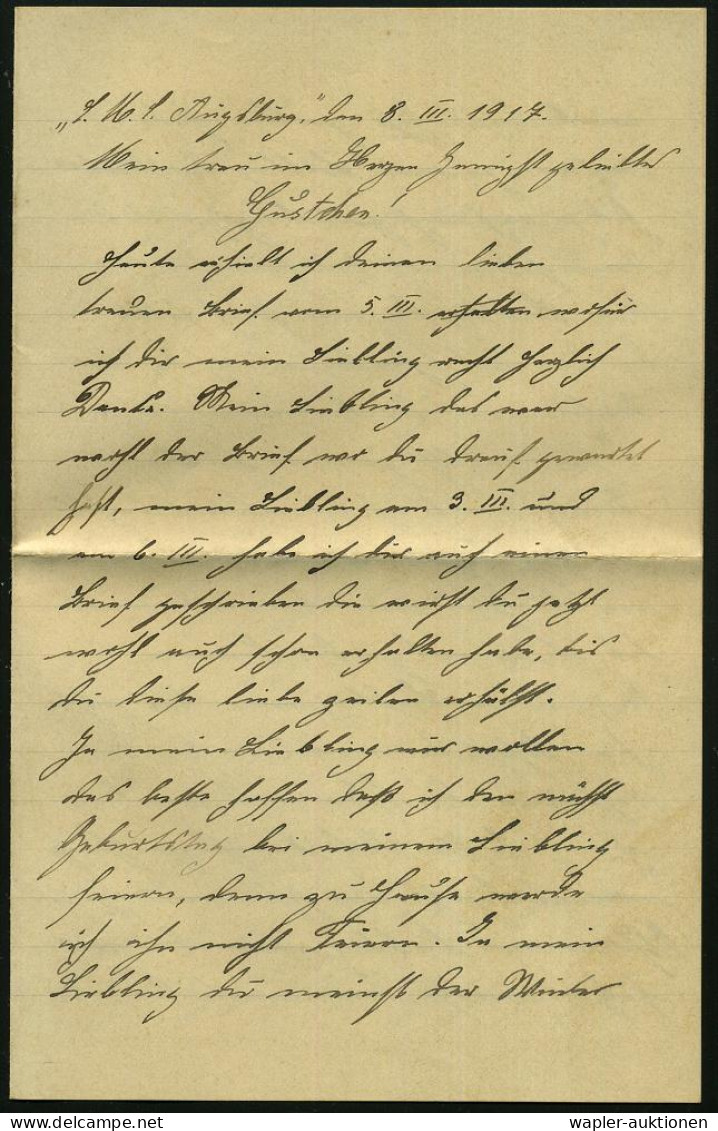 „S. M. S. Augsburg", den 8. III. 1917.
Mein treu im Herzen innigst geliebtes
Gustchen!
Heute erhielt ich deinen lieben
treuen Brief vom 5. III. erhalten wofür
ich dir mein Liebling recht herzlich
Danke. Mein Liebling das war
wohl der Brief wo du drauf gewartet
hast, mein Liebling am 3. III. und
am 6. III. habe ich dir auch einen
Brief geschrieben die wirst du jetzt
wohl auch schon erhalten habe, bis
du diese liebe zeilen erhälst.
Ja mein Liebling wir wollen
das beste hoffen daß ich den nächst
Geburtstag bei meinem Liebling
feiern, denn zu Hause werde
ich ihn nicht Feiern. Ja mein
Liebling du meinst der Winter
wapler-auktionen